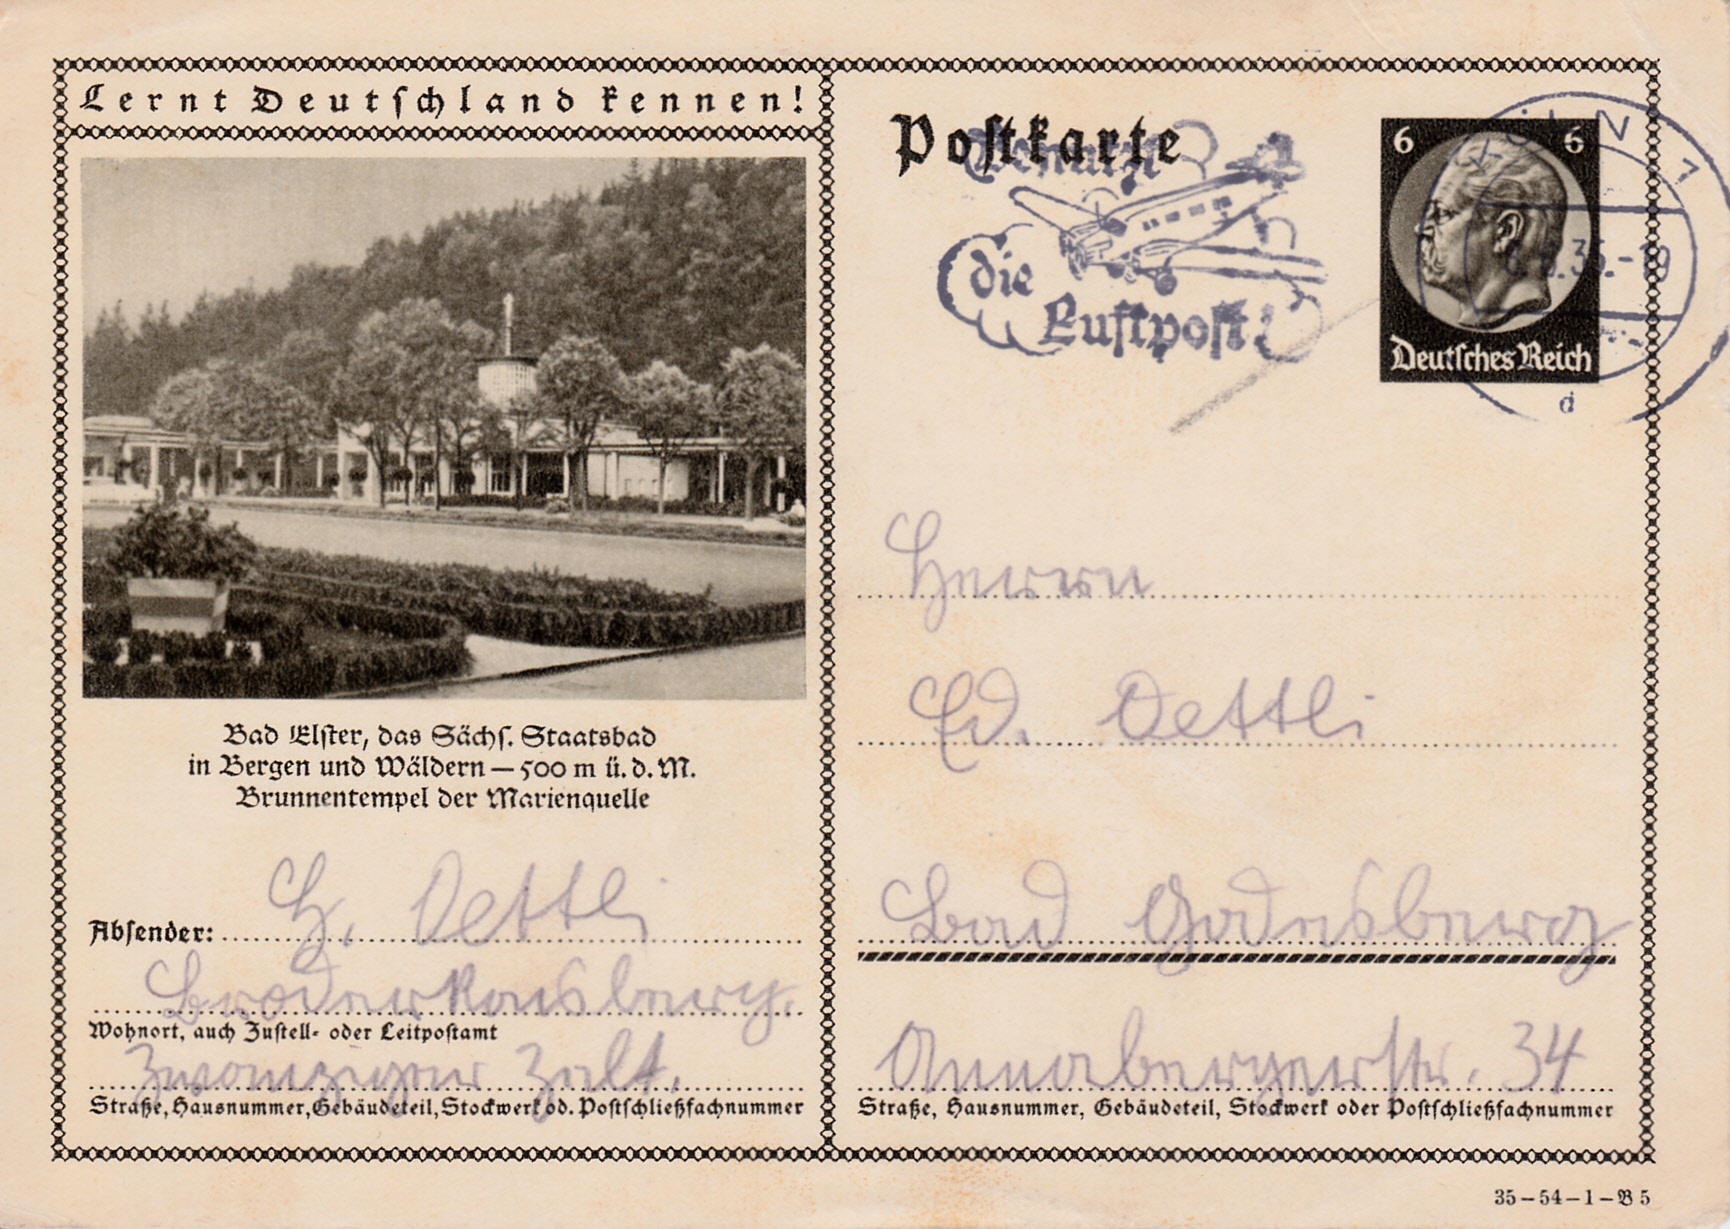 Lernt Deutschland kennen!
Bad Elster, das Sächs. Staatsbad
in Bergen und Wäldern – 500 m ü. d. M.
Brunnentempel der Marienquelle
Absender: H. Oettli
Wohnort, auch Zustell- oder Leitpostamt
Zwanziger Zelt.
Straße, Hausnummer, Gebäudeteil, Stockwerk od. Postschließfachnummer
Postkarte
Benutzt
die
Luftpost!
6 6
Deutsches Reich
KÖLN 1
35.-19
d
Herrn
Ed. Oettli
Bad Godesberg
Annabergerstr. 34
Straße, Hausnummer, Gebäudeteil, Stockwerk oder Postschließfachnummer
35–54–1–B 5